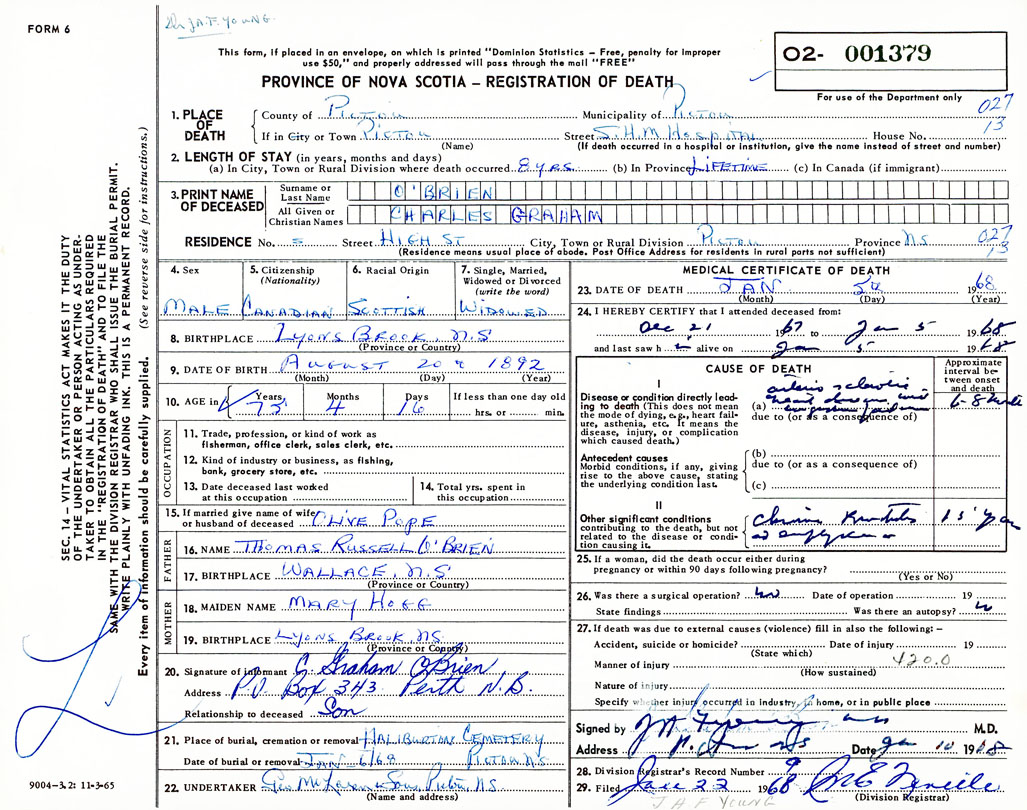 FORM 6
Dr JA.F. YOUNG.
This form, if placed in an envelope, on which is printed "Dominion Statistics – Free, penalty for improper
use $50," and properly addressed will pass through the mail "FREE"
PROVINCE OF NOVA SCOTIA – REGISTRATION OF DEATH
O2- 001379
For use of the Department only
027
13
1. PLACE OF DEATH
County of PICTOU Municipality of PICTOU
If in City or Town PICTOU Street S.H.M HOSPITAL House No.
(Name) (If death occurred in a hospital or institution, give the name instead of street and number)
2. LENGTH OF STAY (in years, months and days)
(a) In City, Town or Rural Division where death occurred 8 yrs. (b) In Province LIFETIME (c) In Canada (if immigrant)
3. PRINT NAME OF DECEASED
Surname or Last Name O'BRIEN
All Given or Christian Names CHARLES GRAHAM
RESIDENCE No. – Street HIGH ST City, Town or Rural Division PICTOU Province N.S
(Residence means usual place of abode. Post Office Address for residents in rural parts not sufficient)
027
13
4. Sex
MALE
5. Citizenship (Nationality)
CANADIAN
6. Racial Origin
SCOTTISH
7. Single, Married, Widowed or Divorced (write the word)
WIDOWED
8. BIRTHPLACE LYONS BROOK, N.S
(Province or Country)
9. DATE OF BIRTH AUGUST 20 1892
(Month) (Day) (Year)
10. AGE in Years Months Days If less than one day old
75 4 16 hrs. or min.
OCCUPATION
11. Trade, profession, or kind of work as
fisherman, office clerk, sales clerk, etc.
12. Kind of industry or business, as fishing,
bank, grocery store, etc.
13. Date deceased last worked
at this occupation
14. Total yrs. spent in
this occupation
15. If married give name of wife
or husband of deceased OLIVE POPE
FATHER
16. NAME THOMAS RUSSELL O'BRIEN
17. BIRTHPLACE WALLACE, N.S
(Province or Country)
MOTHER
18. MAIDEN NAME MARY HOGG
19. BIRTHPLACE LYONS BROOK, NS
(Province or Country)
20. Signature of informant C. Graham O'Brien
Address P.O. Box 343 Perth N.B.
Relationship to deceased Son
21. Place of burial, cremation or removal HALIBURTON CEMETERY
Date of burial or removal JAN 6/68 PICTOU N.S
22. UNDERTAKER Geo. McLaren & Sons, Pictou N.S.
(Name and address)
MEDICAL CERTIFICATE OF DEATH
23. DATE OF DEATH JAN 5th 1968
(Month) (Day) (Year)
24. I HEREBY CERTIFY that I attended deceased from:
Dec 21 1967 to Jan 5 1968
and last saw h alive on Jan 5 1968
CAUSE OF DEATH
Approximate interval between onset and death
I
Disease or condition directly leading to death (This does not mean the mode of dying, e.g., heart failure, asthenia, etc. It means the disease, injury, or complication which caused death.)
(a) arterio sclerotic
heart disease with
6-8
due to (or as a consequence of)
Antecedent causes
Morbid conditions, if any, giving rise to the above cause, stating the underlying condition last.
(b)
due to (or as a consequence of)
(c)
II
Other significant conditions contributing to the death, but not related to the disease or condition causing it.
Chronic Bronchitis
and emphysema
15 years
25. If a woman, did the death occur either during
pregnancy or within 90 days following pregnancy?
(Yes or No)
26. Was there a surgical operation? no Date of operation 19
State findings Was there an autopsy?
27. If death was due to external causes (violence) fill in also the following: –
Accident, suicide or homicide? Date of injury 19
(State which)
Manner of injury 420.0
(How sustained)
Nature of injury
Specify whether injury occurred in industry, in home, or in public place
Signed by M.D.
Address Date Jan 10 1968
28. Division Registrar's Record Number 9
29. Filed Jan 22 1968
(Division Registrar)
J A F YOUNG
SEC. 14 – VITAL STATISTICS ACT MAKES IT THE DUTY
OF THE UNDERTAKER OR PERSON ACTING AS UNDER-
TAKER TO OBTAIN ALL THE PARTICULARS REQUIRED
IN THE "REGISTRATION OF DEATH" AND TO FILE THE
SAME WITH THE DIVISION REGISTRAR WHO SHALL ISSUE THE BURIAL PERMIT.
WRITE PLAINLY WITH UNFADING INK. THIS IS A PERMANENT RECORD.
Every item of information should be carefully supplied. (See reverse side for instructions.)
9004-3.2: 11-3-65